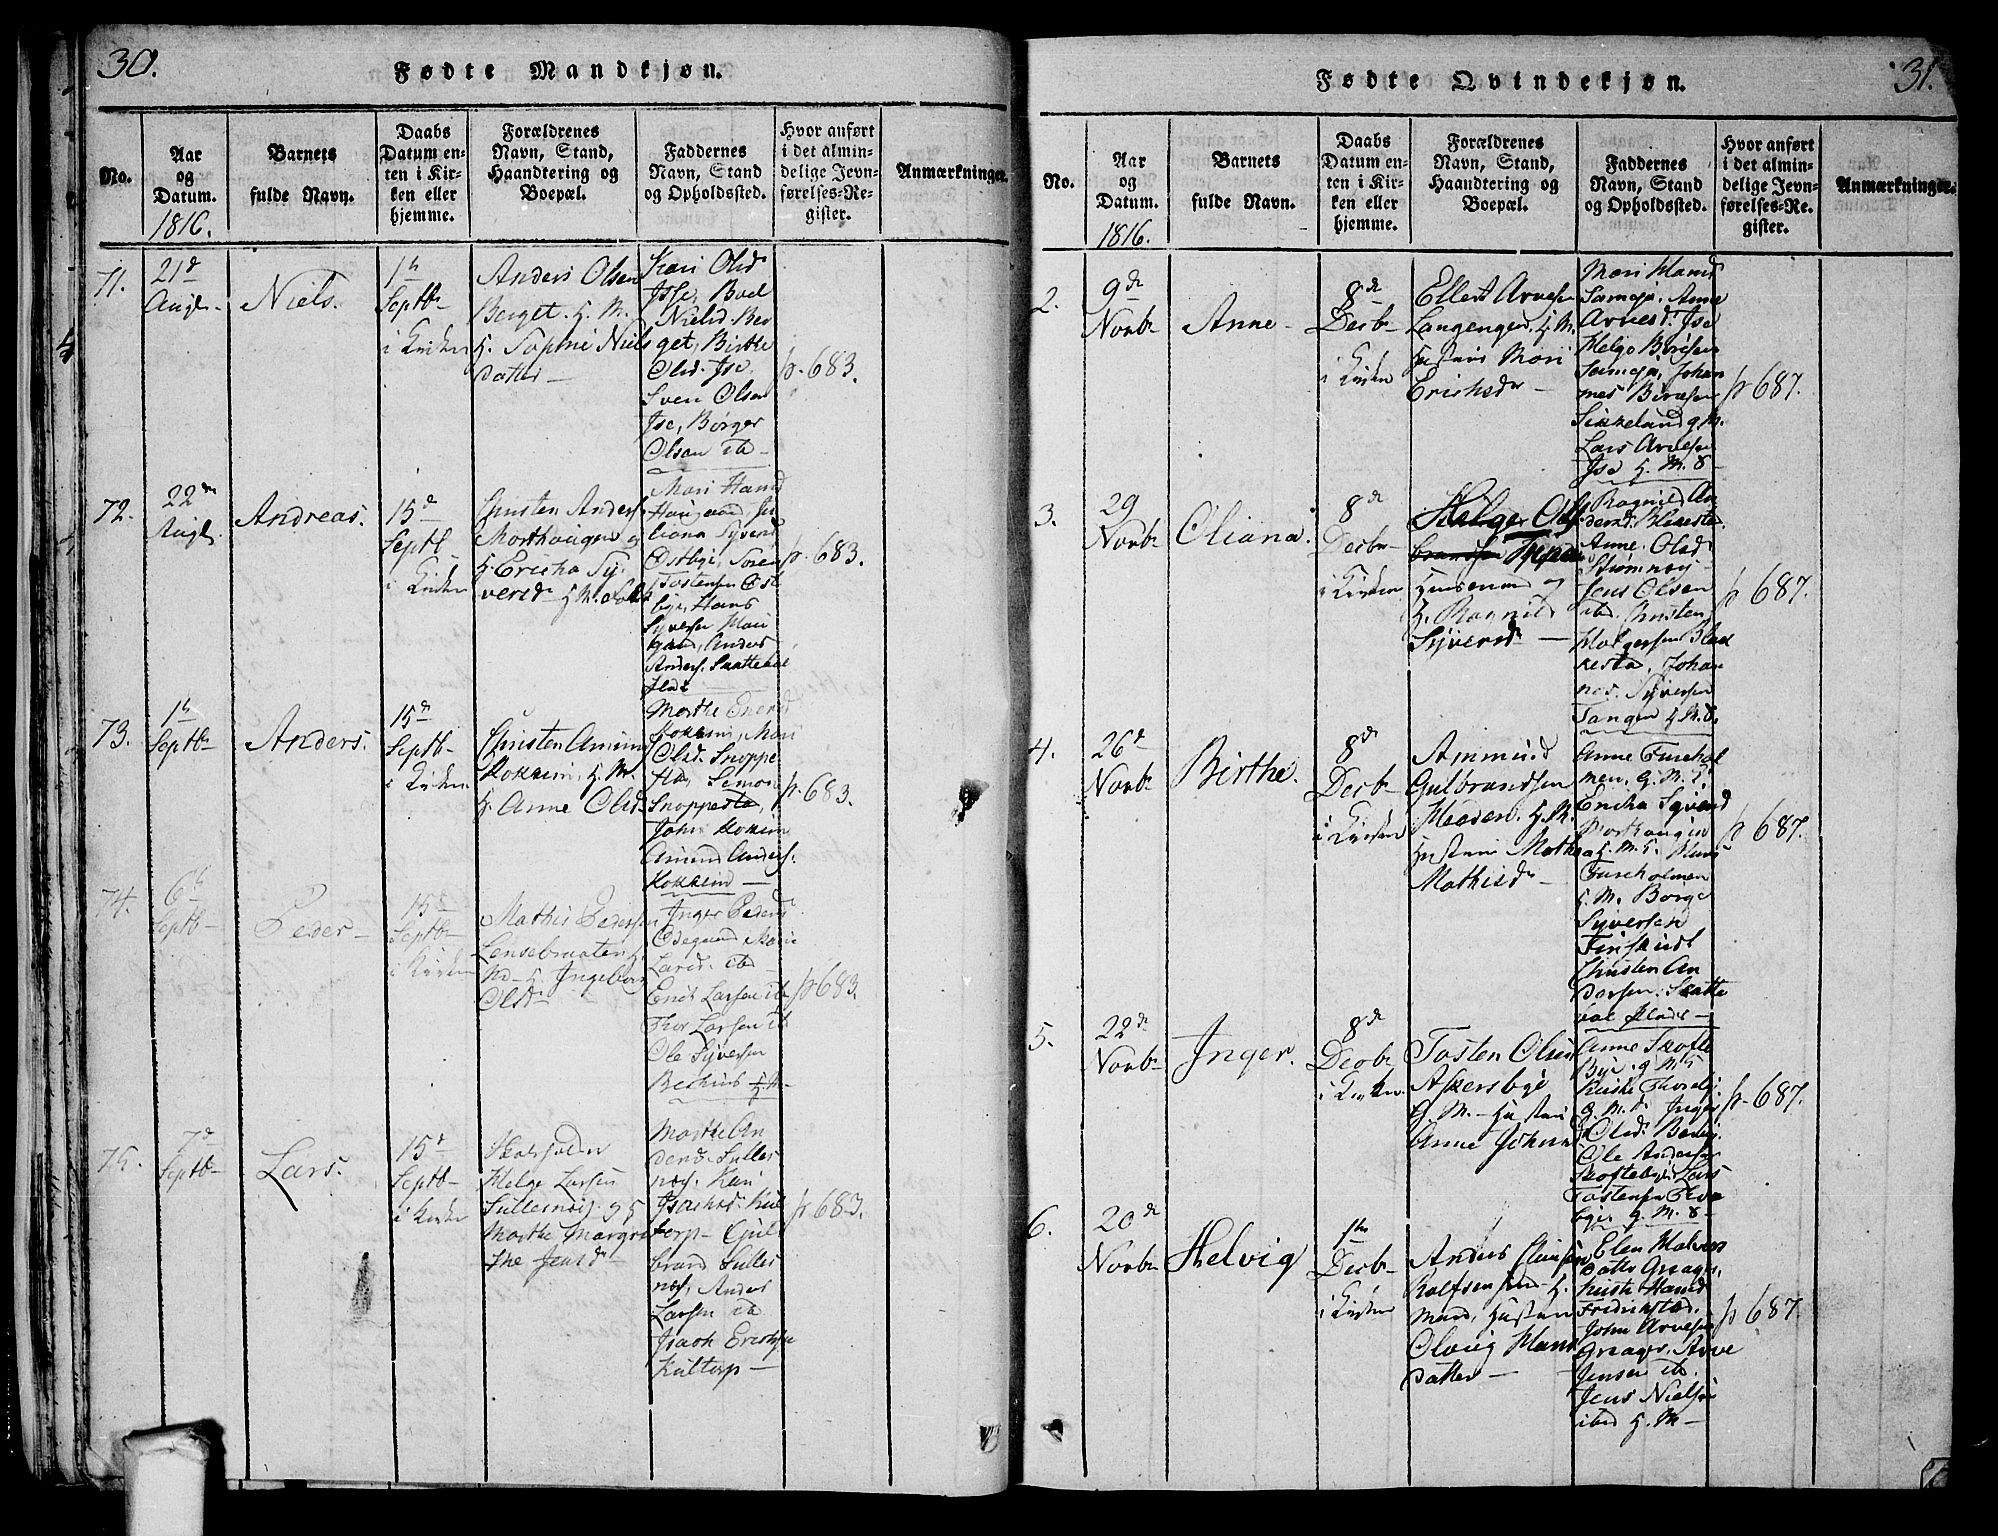 30.
Fødte Mandkjøn.
No.
Aar
og
Datum.
1816.
Barnets
fulde Navn.
Daabs
Datum en-
ten i Kir-
ken eller
hjemme.
Forældrenes
Navn, Stand,
Haandtering og
Boepæl.
Faddernes
Navn, Stand
og Opholdssted.
Hvor anført
i det almin-
delige Jevn-
førelses-Re-
gister.
Anmærkninger.
71.
21d
Augl
Niels.
1h
Septb
i Kirken
Anders Olsen
Berget. H. M.
H. Sophie Niels
datter
Kari Olsd
Isse, Boel
Nielsd. Ber
get, Birthe
Olsd. Ise,
Sven Olsen
Ise, Børger
Olsen ib
p. 683.
72.
22de
Augl
Andreas.
15d
Septb
i Kirken
Christen Anders
Morthaugen og
H. Ericha Sy
versd H. M.
Mari Hansd
Haugaard
liana Syversd
Østbye, Soren
Tostensen Øst
bye, Hans
Syversen Hau
gaard, Anders
Anders. Skattebøl
p. 683.
73.
1h
Septb
Anders.
15de
Septb
i Kirken
Christen Amun
Kokkim, H. M.
H. Anne Olsd
Marthe Enersd
Kokkim, Mari
Olsd. Snoppe
sta, Simon
Snoppesta,
John Kokkim
Amund Anders.
Kokkim
p. 683.
74.
6h
Septb
Peder
15d
Septb
i Kirken
Mathis Pedersen
Lensebraaten H.
M H Ingeborg
Olsd
Inger Peders
Ødegaard Marie
Larsd. ib
Erich Larsen ib
Thor Larsen ib
Ole Syversen
Bechus H. M
p 683.
75.
7d
Septb
Lars.
15d
Septb
i Kirken
Skoleholder
Helge Larsen
Sullernøs. og H
Marthe Margre
the Jensd
Marthe An
dersd. Suller
nøs. Kari
Isachsd. Kul
torp Gul
brand Suller
nøs, Anders
Larsen ib
Isach Erichsen
Kultorp
p 683.
31.
Fødte Qvindekjøn.
No.
Aar
og
Datum.
1816.
Barnets
fulde Navn.
Daabs
Datum en-
ten i Kir-
ken eller
hjemme.
Forældrenes
Navn, Stand,
Haandtering og
Boepæl.
Faddernes
Navn, Stand
og Opholdssted.
Hvor anført
i det almin-
delige Jevn-
førelses-Re-
gister.
Anmærkninger.
2.
9de
Novbr
Anne
8de
Decbr
i Kirken
Ellert Arvesen
Langengen, H. M.
Hustrue Mari
Erichsdr
Mari Hansd
Samsjø, Anne
Arvesd. Ise
Helge Børesen
Samsjø, Johan
nes Børesen
Sikkeland g. M.
Lars Arvesen
Ise H. M. &
p 687.
3.
29
Novbr
Oliana.
8de
Decbr
i Kirken
Helger Ols
Huusmand og
H. Ragnild
Syversdr
Ragnild An
dersd. Blekesta
Anne Olsd
Strømnøs
Jens Olsen
ibd. Christen
Holgersen Blek
kesta, Johan
nes Syversen
Tangen H. M. &
p 687.
4.
26d
Novbr
Birthe.
8de
Decbr
i Kirken
Ammund
Gulbrandsen
Moden. H. M.
Hustrue Mathea
Mathisdr
Anne Fureholmen
men, g. M. K
Ericha Syversd
Morthaugen
H. M. K. Hans
Fureholmen
H. M. Børge
Syversen
Finskudt
Christen An
dersen Skatte
bøl
p 687.
5.
22de
Novbr
Inger.
8de
Decbr
i Kirken
Tosten Olsen
Askersbye
G. M. Hustrue
Anne Johnsd
Anne Skofte
Bye, g M K
Kirstie Thorsbye
g. M. K. Inger
Olsd. Berby
Ole Andersen
Skoftebye, Lars
Tostensen
bye, g. M. &
p. 687.
6.
20de
Novbr
Helvig
1te
Decbr
i Kirken
Anders Clausen
Kolfsen H.
Mand, Hustrue
Olvug Hans
datter
Elen Halvors
datter Graager,
Kirste Hansd
Fredrikstad,
John Arvesen
Graager, Arve
Jensen ib.
Jens Nielsen
ibed H. M
p 687.